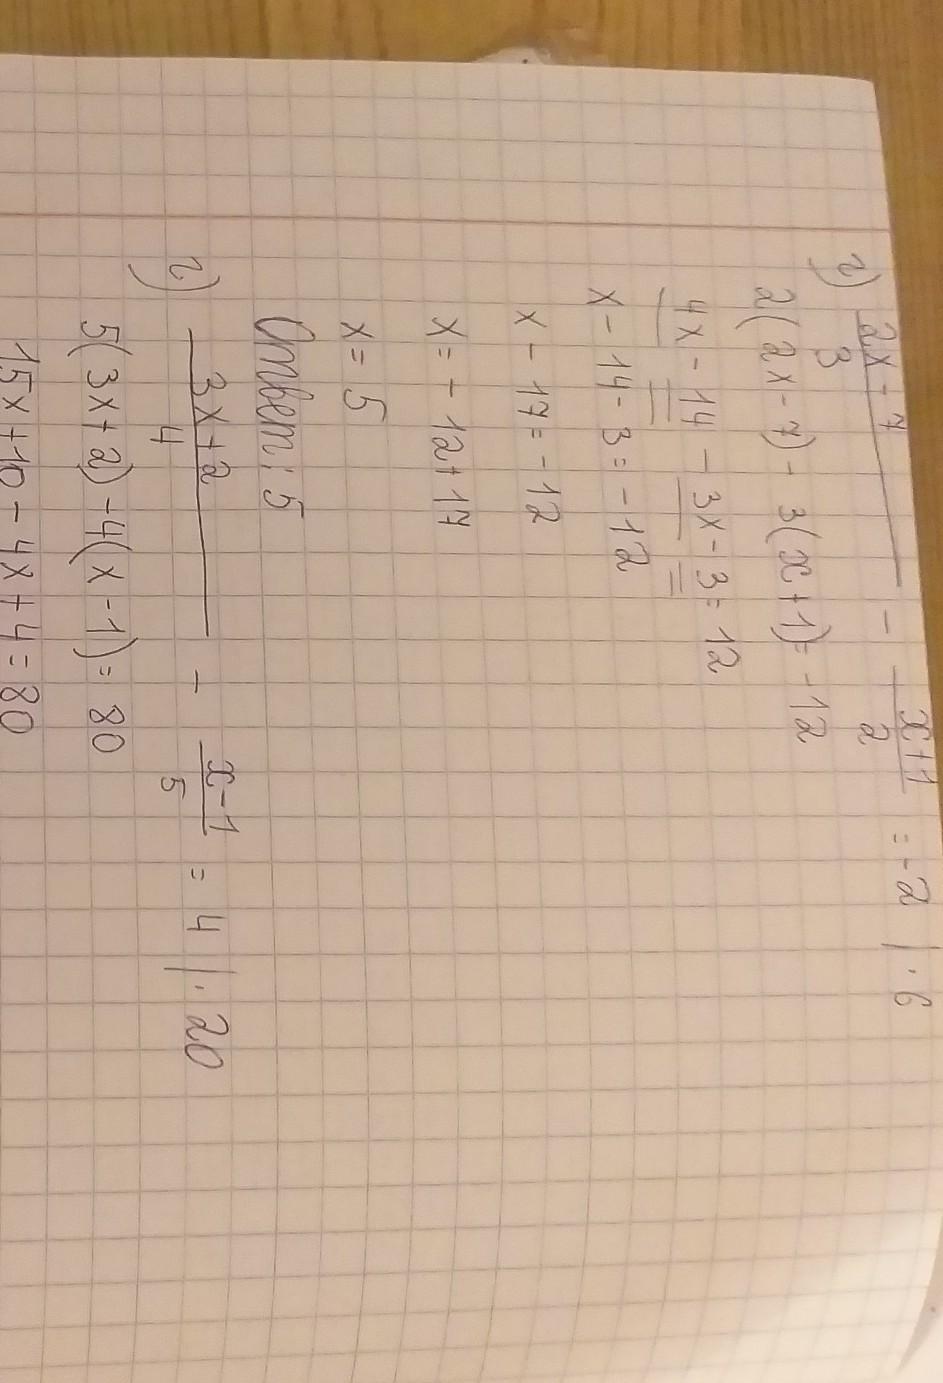 г) 2x - 7/3 - x+1/2 = -2 | · 6
2(2x - 7) - 3(x+1) = -12
4x - 14 - 3x - 3 = 12
x - 14 - 3 = -12
x - 17 = -12
x = -12+17
x = 5
Ответ: 5
г) 3x+2/4 - x-1/5 = 4 | · 20
5(3x+2) -4(x-1) = 80
15x+10 - 4x+4 = 80